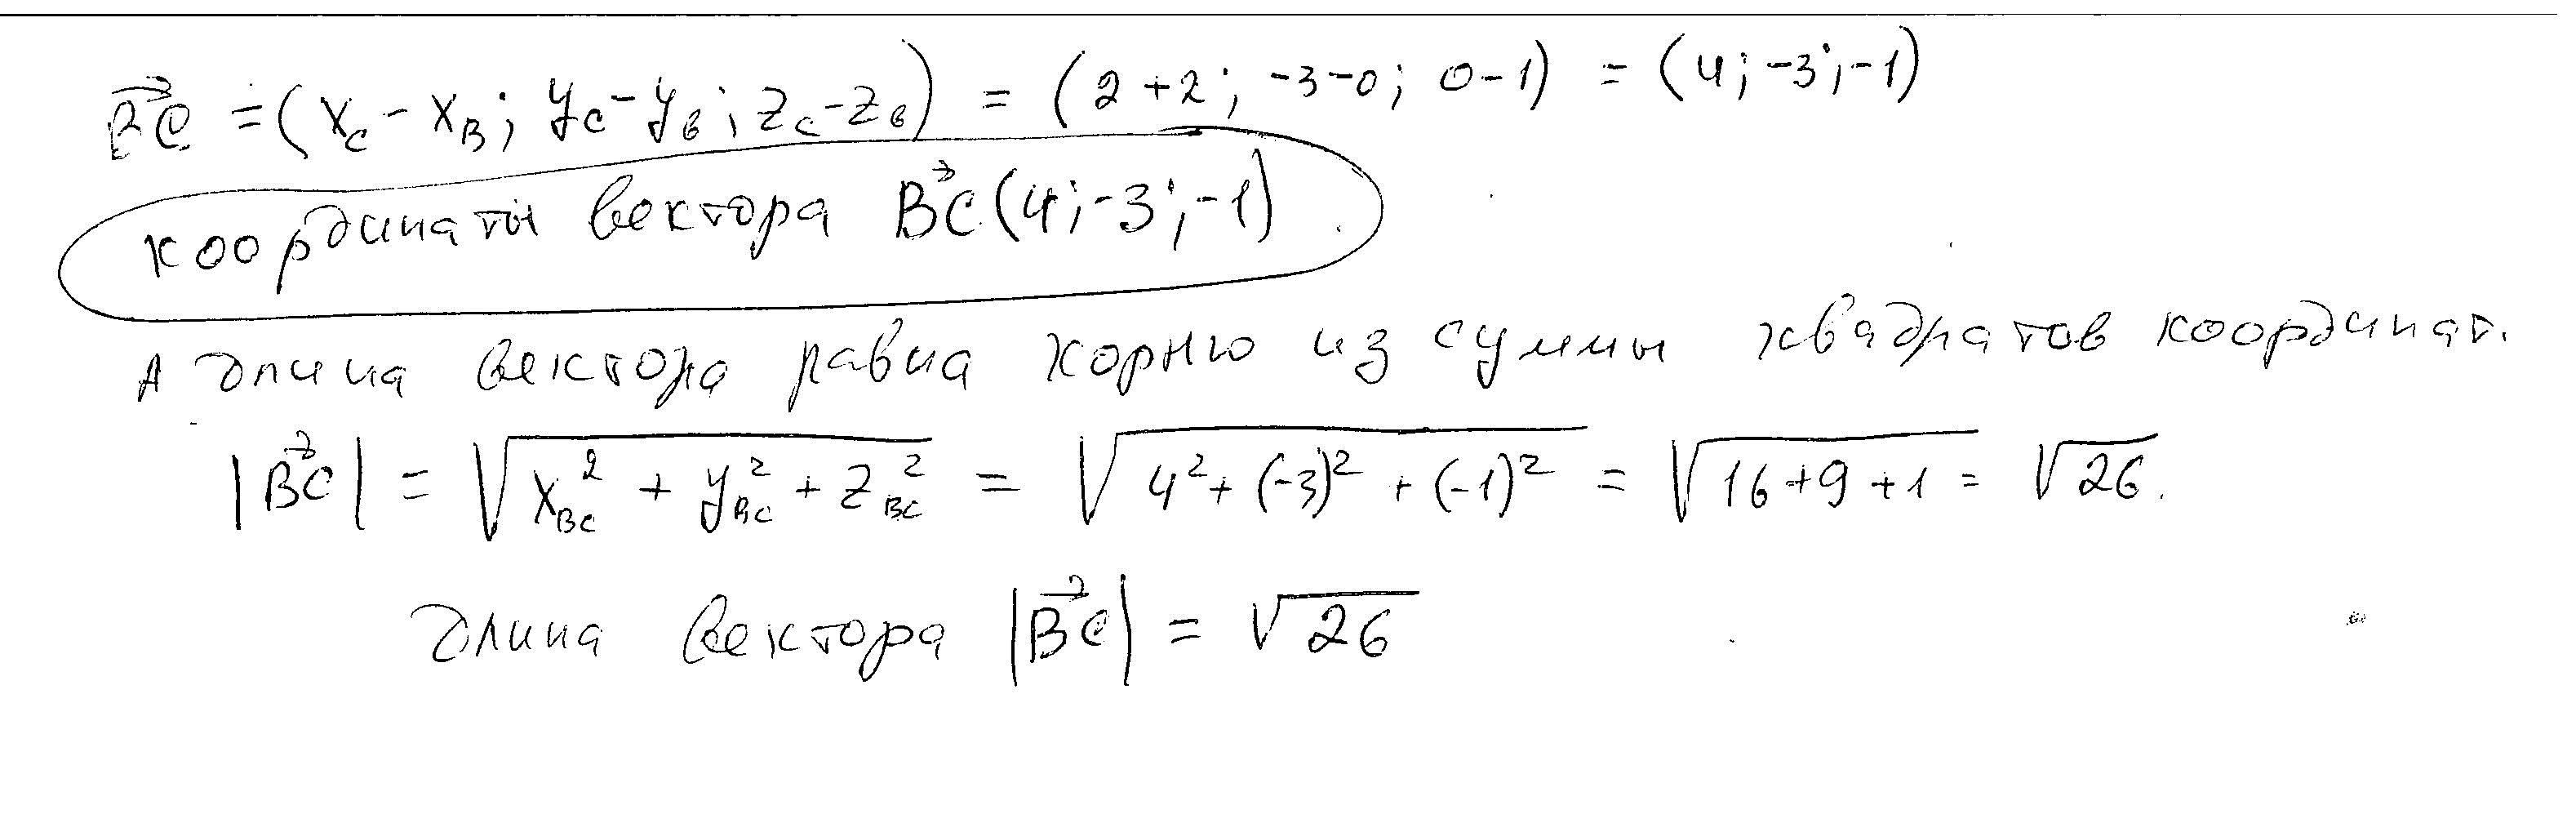 BC⃗ = (x_C - x_B; y_C - y_B; z_C - z_B) = (2+2; -3-0; 0-1) = (4; -3; -1)
координаты вектора BC⃗(4; -3; -1)
А длина вектора равна корню из суммы квадратов координат.
|BC⃗| = √(x_BC² + y_BC² + z_BC²) = √(4² + (-3)² + (-1)²) = √(16+9+1) = √26.
длина вектора |BC⃗| = √26